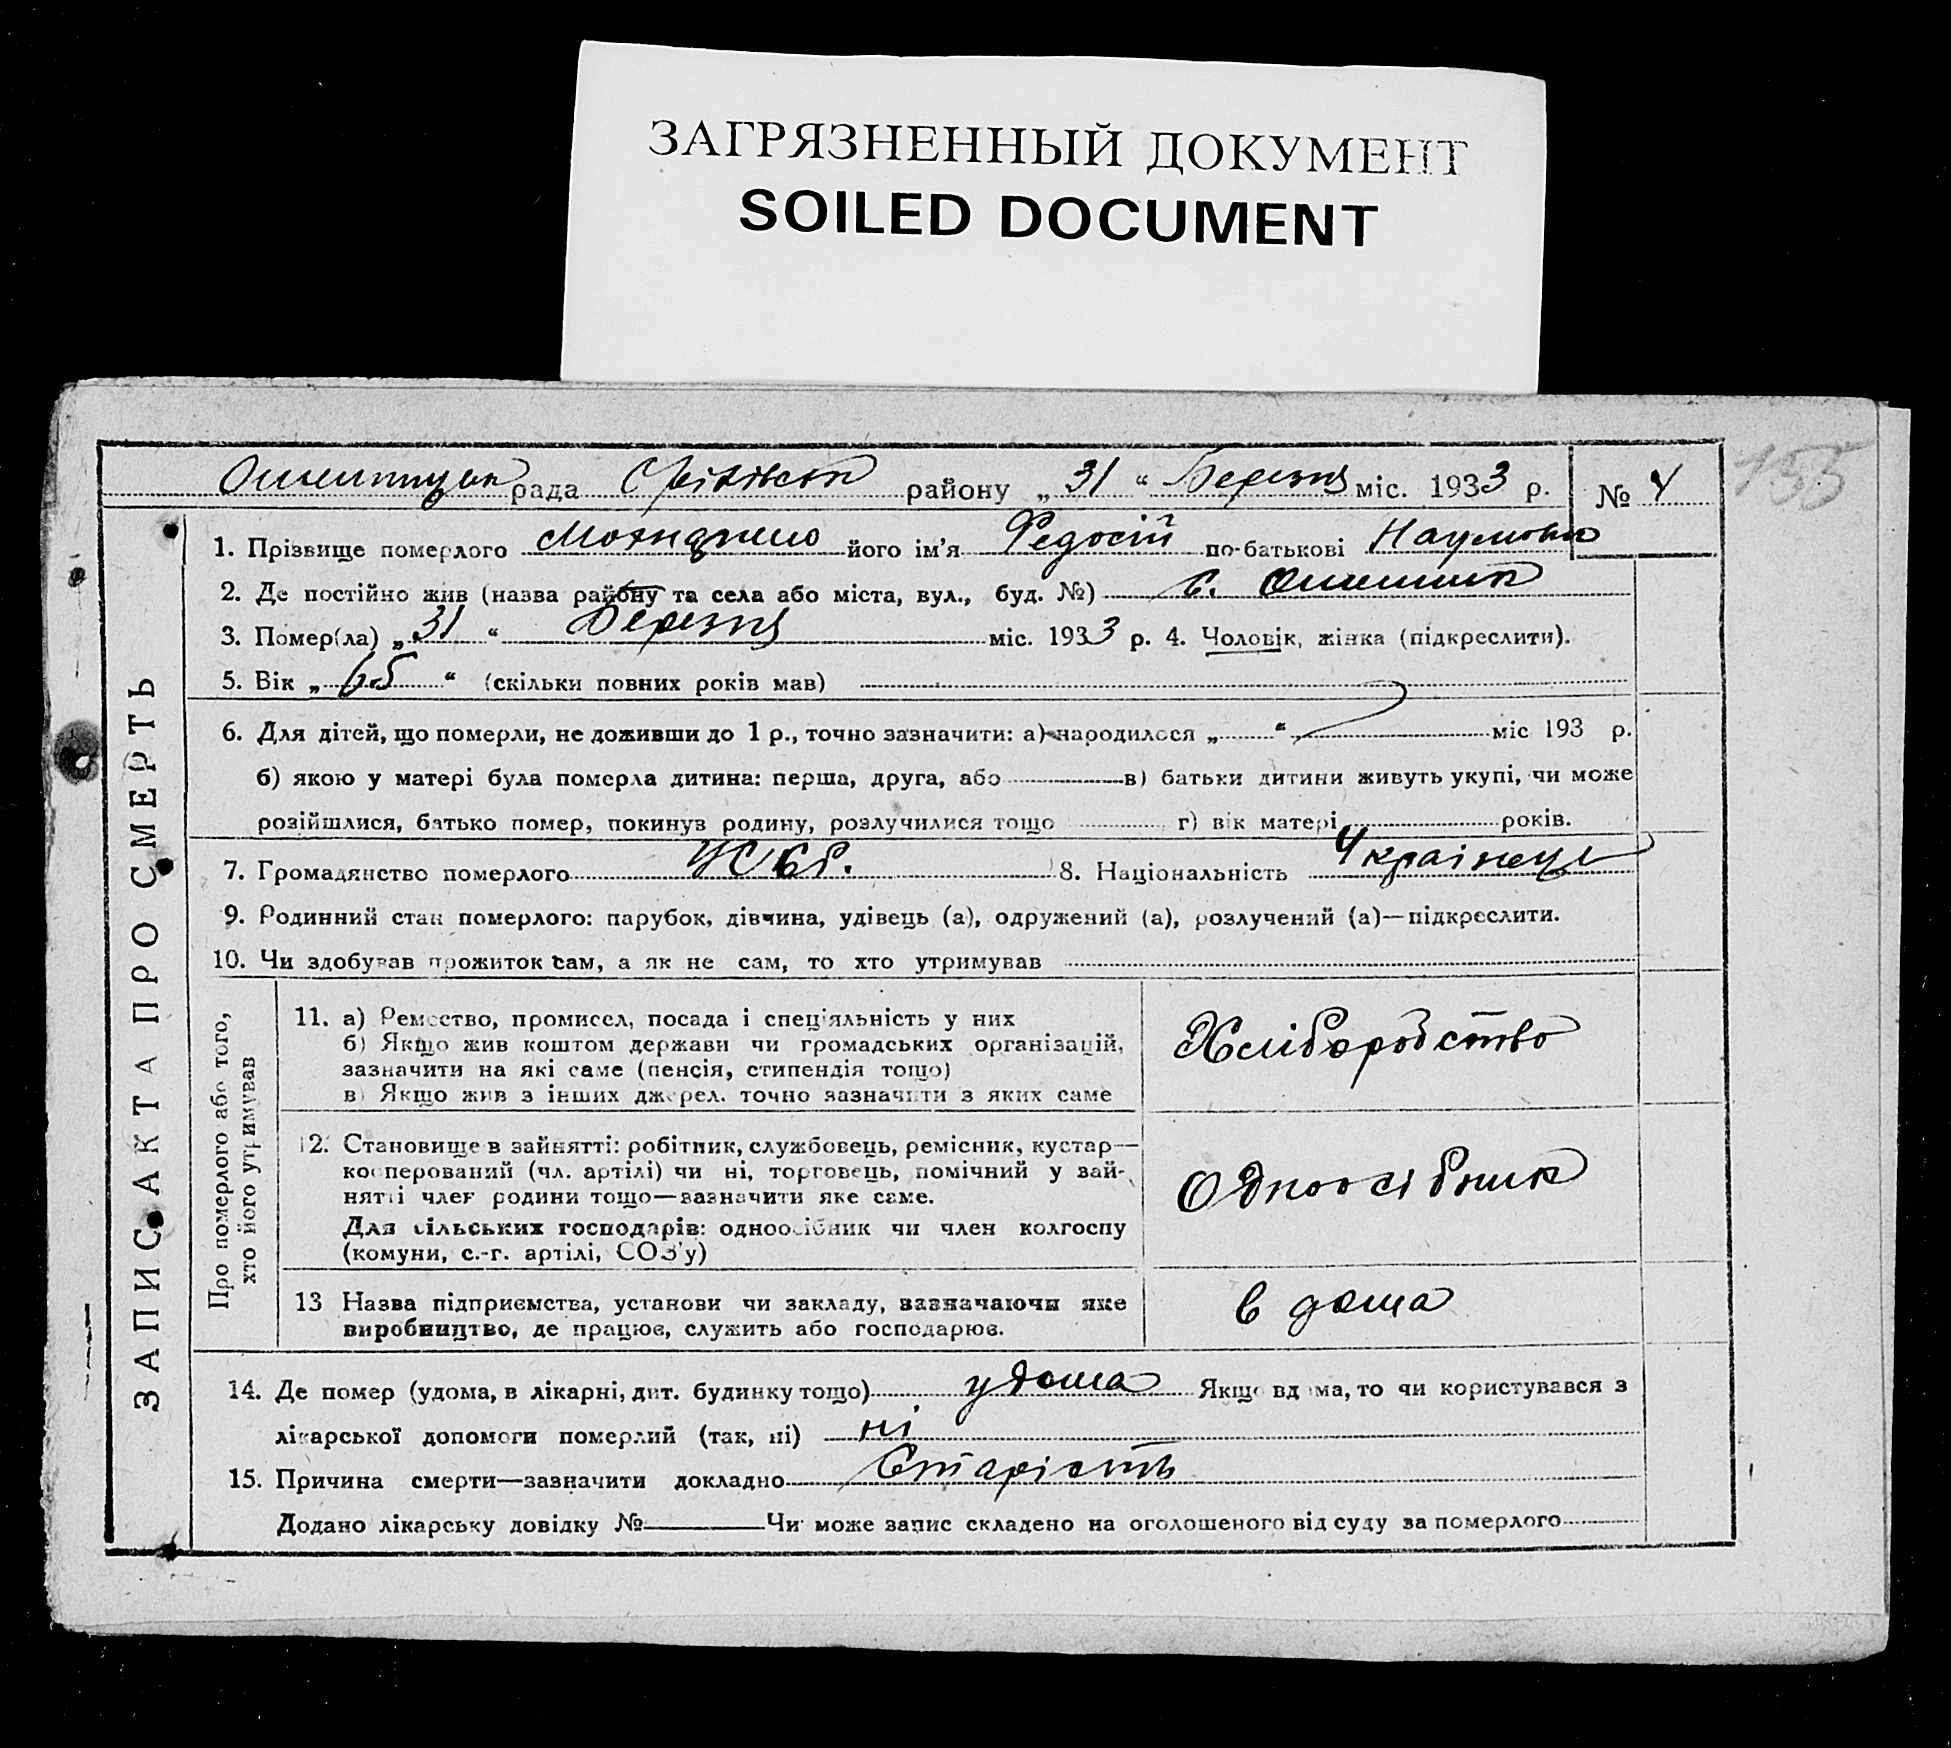 ЗАГРЯЗНЕННЫЙ ДОКУМЕНТ
SOILED DOCUMENT
155
рада району „31“ Березня міс. 1933 р. № 4
ЗАПИС АКТА ПРО СМЕРТЬ
1. Прізвище померлого його ім'я Федосій по-батькові Наумович
2. Де постійно жив (назва району та села або міста, вул., буд. №) с.
3. Помер(ла) „31“ Березня міс. 1933 р. 4. Чоловік, жінка (підкреслити).
5. Вік „65“ (скільки повних років мав)
6. Для дітей, що померли, не доживши до 1 р., точно зазначити: а) народилося „ “ міс 193 р.
б) якою у матері була померла дитина: перша, друга, або в) батьки дитини живуть укупі, чи може
розійшлися, батько помер, покинув родину, розлучилися тощо г) вік матері років.
7. Громадянство померлого 8. Національність Українець
9. Родинний стан померлого: парубок, дівчина, удівець (а), одружений (а), розлучений (а)—підкреслити.
10. Чи здобував прожиток сам, а як не сам, то хто утримував
Про померлого або того,
хто його утримував
11. а) Ремество, промисел, посада і спеціяльність у них
б) Якщо жив коштом держави чи громадських організацій,
зазначити на які саме (пенсія, стипендія тощо)
в) Якщо жив з інших джерел, точно зазначити з яких саме
Хліборобство
12. Становище в зайнятті: робітник, службовець, ремісник, кустар—
кооперований (чл. артілі) чи ні, торговець, помічний у зай-
нятті член родини тощо—зазначити яке саме.
Для сільських господарів: одноосібник чи член колгоспу
(комуни, с.-г. артілі, СОЗ'у)
Одноосібник
13 Назва підприємства, установи чи закладу, зазначаючи яке
виробництво, де працює, служить або господарює.
в дома
14. Де помер (удома, в лікарні, дит. будинку тощо) удома Якщо вдома, то чи користувався з
лікарської допомоги померлий (так, ні) ні
15. Причина смерти—зазначити докладно Старість
Додано лікарську довідку № Чи може запис складено на оголошеного від суду за померлого